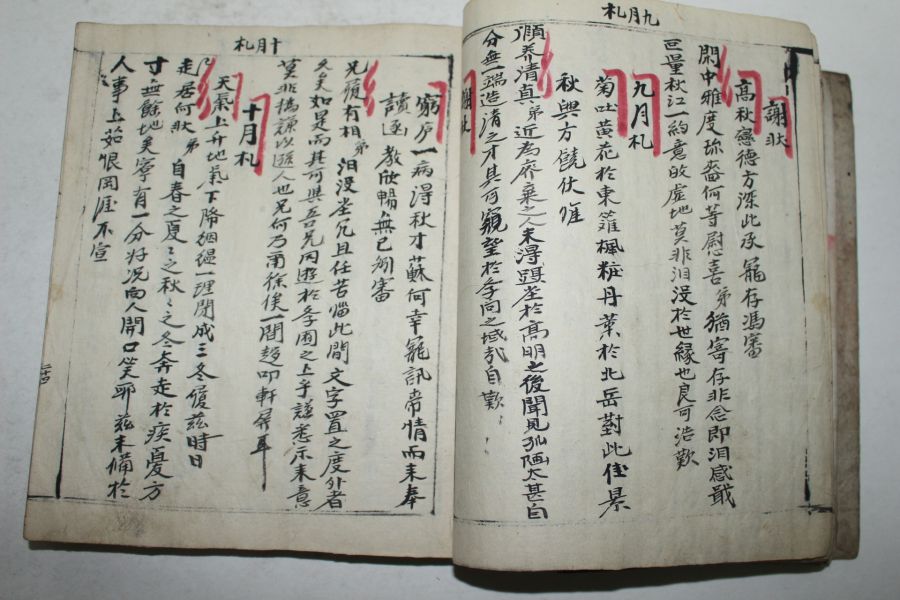 九月札
謝狀
高秋戀德方深此承寵存馮審
閑中雅度珎嗇何等慰喜弟猶寄存非念即泪感戢
叵量秋江一約意敀虛地莫非泪没於世緣也良可浩歎
九月札
菊吐黃花於東籬楓粧丹葉於北岳對此佳景
秋興方饒伏惟
頤养清真弟近為齊棄之未得趍坐於高明之後聞見孤陋太甚自
分無一端造清之才其何窺望於學问之域哉自歎
謝狀
十月札
窮庐一病得秋才蘇何幸寵訊帶情而來奉
讀逐教欣暢無已劬審
兄履有相弟汨没坐冗且任苦惱此間文字置之度外者
久矣如是而其可與吾兄同遊於學圃之上乎謹悉示来意
莫非撝謙以遊人也兄何乃爾徐俟一間趍叩軒屏耳
十月札
天氣上升地氣下降絪縕一理閉成三冬伏惟玆時日
走居何狀弟自春之夏之秋之冬奔走於疾憂方
寸無餘地矣寧有一分好况向人開口笑耶玆未備於
人事上茹恨罔涯不宣